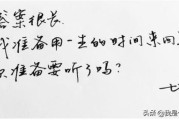 答案很长
我准备用一生的时间来回
你准备要听了吗?
七
头条 @我是